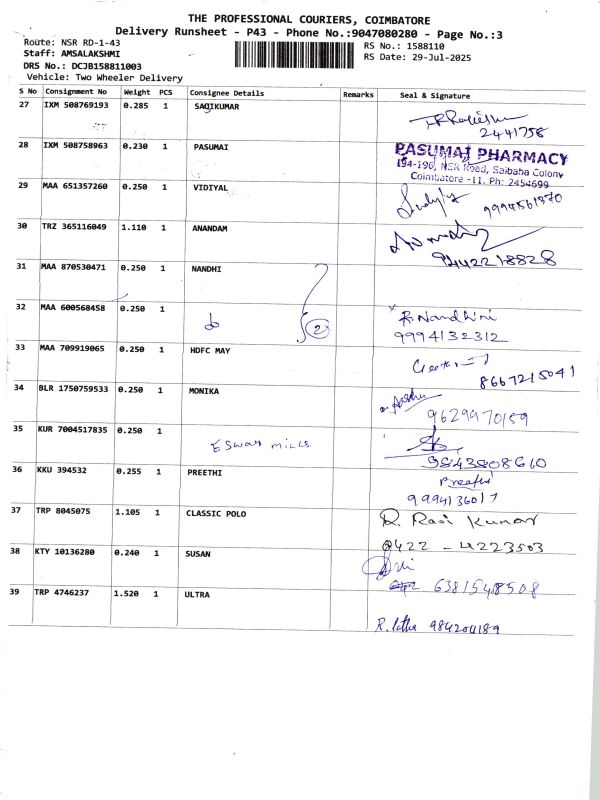 THE PROFESSIONAL COURIERS, COIMBATORE
Delivery Runsheet - P43 - Phone No.:9047080280 - Page No.:3
Route: NSR RD-1-43
Staff: AMSALAKSHMI
DRS No.: DCJB158811003
Vehicle: Two Wheeler Delivery
RS No.: 1588110
RS Date: 29-Jul-2025
S No Consignment No Weight PCS Consignee Details Remarks Seal & Signature
27 IXM 508769193 0.285 1 SADIKUMAR
2441758
28 IXM 508758963 0.230 1 PASUMAI
PASUMAI PHARMACY
194-196, NSR Road, Saibaba Colony
Coimbatore -11. Ph: 2454699
29 MAA 651357260 0.250 1 VIDIYAL
9994561370
30 TRZ 365116049 1.110 1 ANANDAM
9442218828
31 MAA 870530471 0.250 1 NANDHI
32 MAA 600568458 0.250 1
2
R. Nandhini
9994132312
33 MAA 709919065 0.250 1 HDFC MAY
8667215041
34 BLR 1750759533 0.250 1 MONIKA
9629970159
35 KUR 7004517835 0.250 1
ESwar mills
9843808610
36 KKU 394532 0.255 1 PREETHI
Preethi
9994136017
37 TRP 8045075 1.105 1 CLASSIC POLO
R. Ravi Kumar
0422 - 4223503
38 KTY 10136280 0.240 1 SUSAN
6381548508
39 TRP 4746237 1.520 1 ULTRA
R. latha 984204189